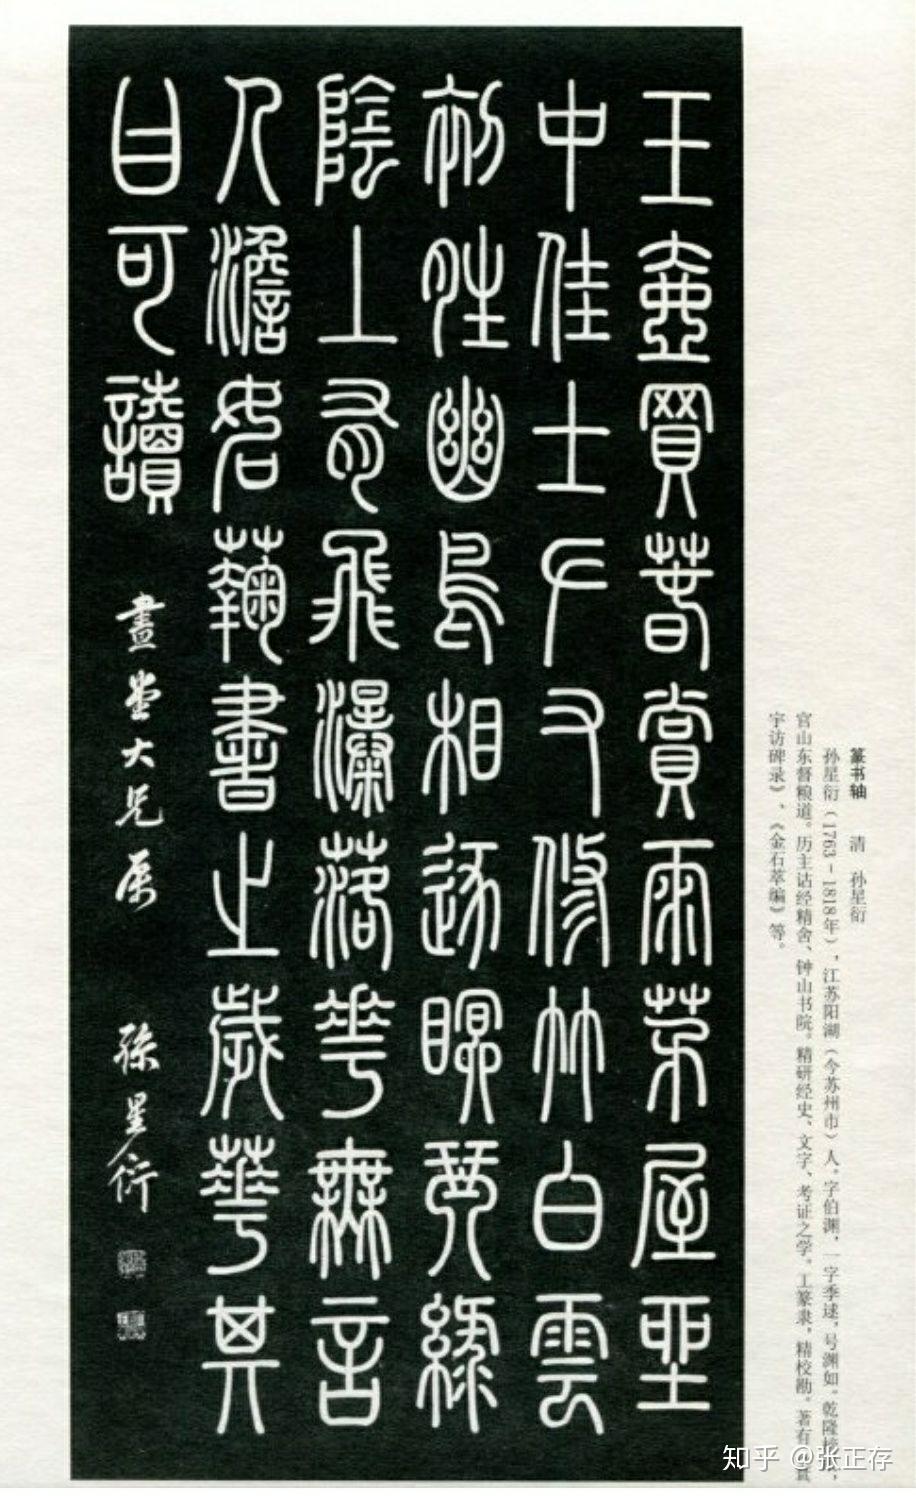 王壺買春賞雨茅屋坐
中佳士左右修竹白雲
初晴幽鳥相逐眠琴綠
陰上有飛瀑落華無言
人澹如菊書之歲華其
曰可讀
畫堂大兄屬 孫星衍
篆书轴 清 孙星衍
孙星衍（1763－1818年），江苏阳湖（今苏州市）人。字伯渊，一字季逑，号渊如。乾隆
官山东督粮道。历主诂经精舍、钟山书院。精研经史、文字、考证之学。工篆隶，精校勘。著有
宇访碑录》、《金石萃编》等。
知乎 @张正存